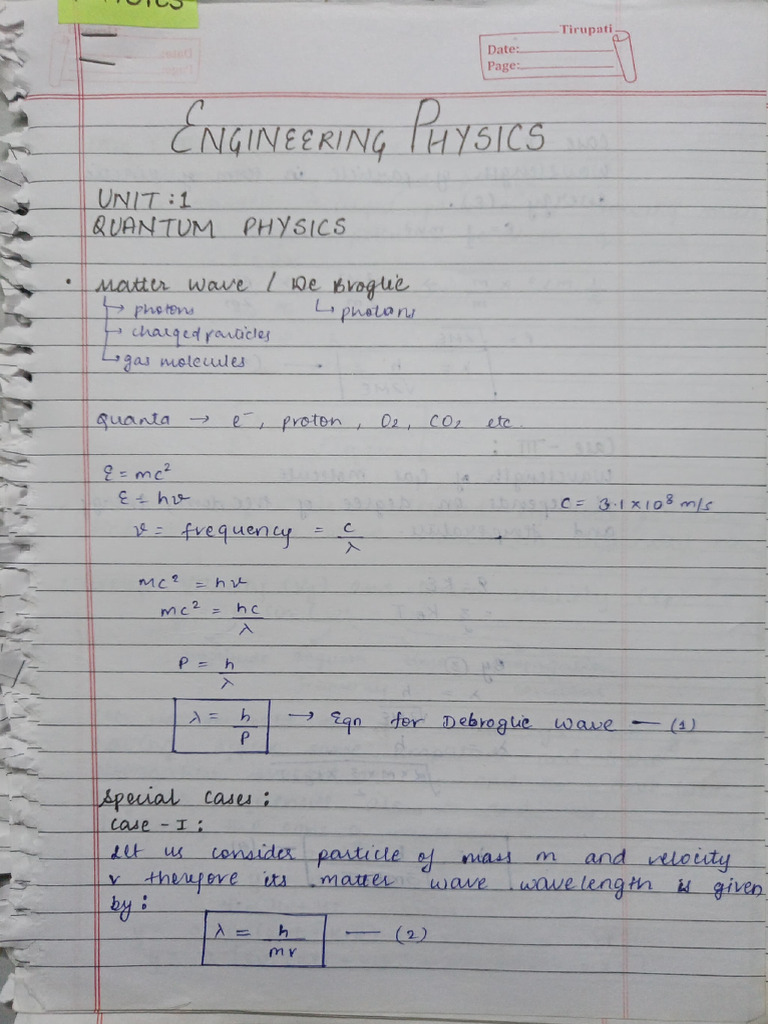 PHYSICS
Tirupati
Date:
Page:
ENGINEERING PHYSICS
UNIT : 1
QUANTUM PHYSICS
• Matter wave / De Broglie
↳ photons ↳ photons
↳ charged particles
↳ gas molecules
Quanta → e⁻, proton, O₂, CO₂ etc.
E = mc²
E = hν C = 3.1 × 10⁸ m/s
ν = frequency = c/λ
mc² = hν
mc² = hc/λ
P = h/λ
λ = h/P → Eqn for Debroglie wave — (1)
Special Cases :
Case - I :
Let us consider particle of mass m and velocity
v therefore its matter wave wavelength is given
by :
λ = h/mv — (2)